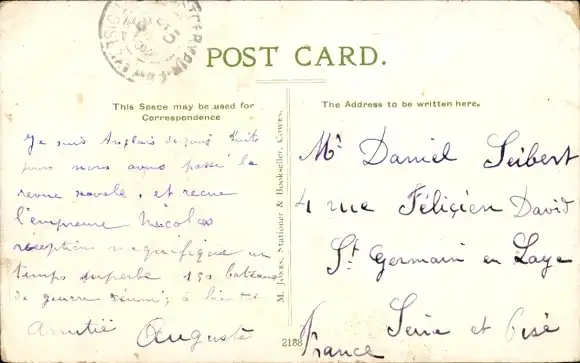 POST CARD.
This Space may be used for
Correspondence
The Address to be written here.
Je suis Anglais depuis huits
jours nous avons passé la
revue navale, et recue
l'empreure Nicolas
réception magnifique un
temps superbe 150 bateaux
de guerre réunis, à bientot
Amitié Auguste
M. Jones, Stationer & Bookseller, Cowes.
Mr Daniel Seibert
4 rue Félicien David
St Germain en Laye
Seine et Oise
France
2188